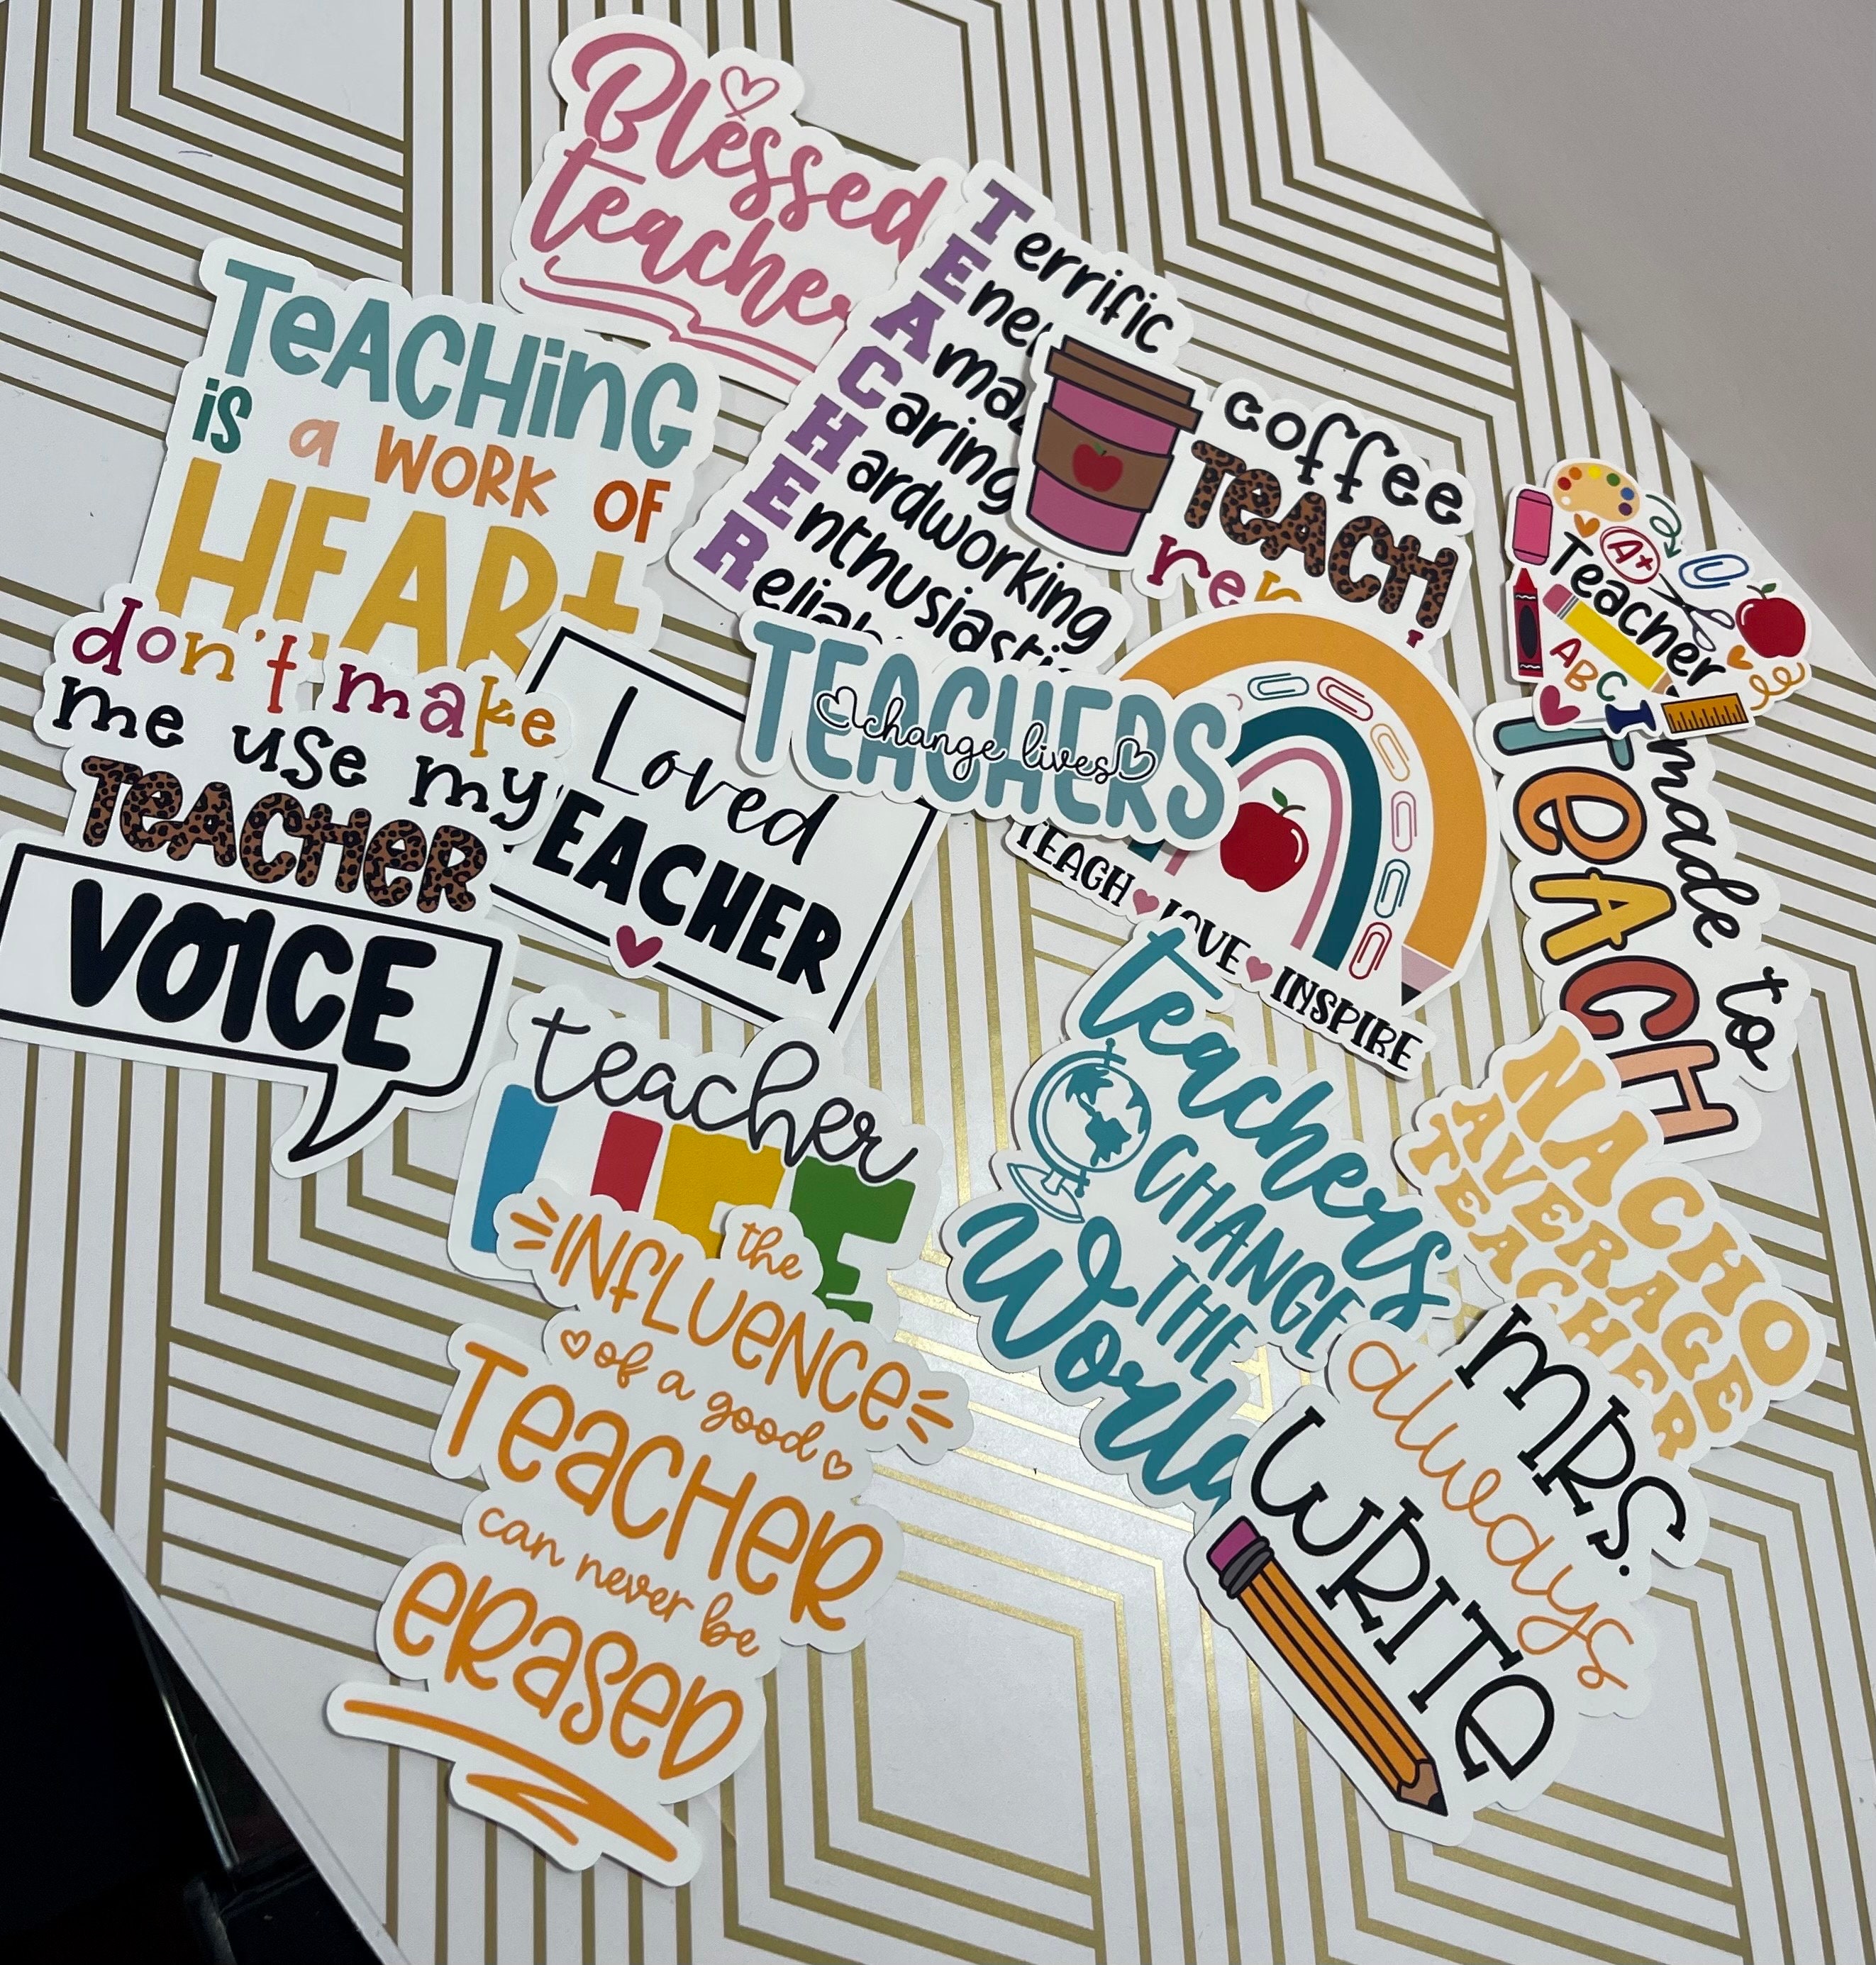 Blessed
teacher
Terrific
Amaz
Caring
Hardworking
TEACHING
is a WORK OF
HEART
coffee
TEACH
A+
Teacher
ABC
don't make
me use my
TEACHER
VOICE
Loved
TEACHER
TEACHERS
change lives
TEACH LOVE INSPIRE
made to
TEACH
teacher
LIFE
teachers
CHANGE
THE
World
NACHO
AVERAGE
TEACHER
the
INFLUENCE
of a good
TEACHER
can never be
ERASED
MRS.
always
WRITE